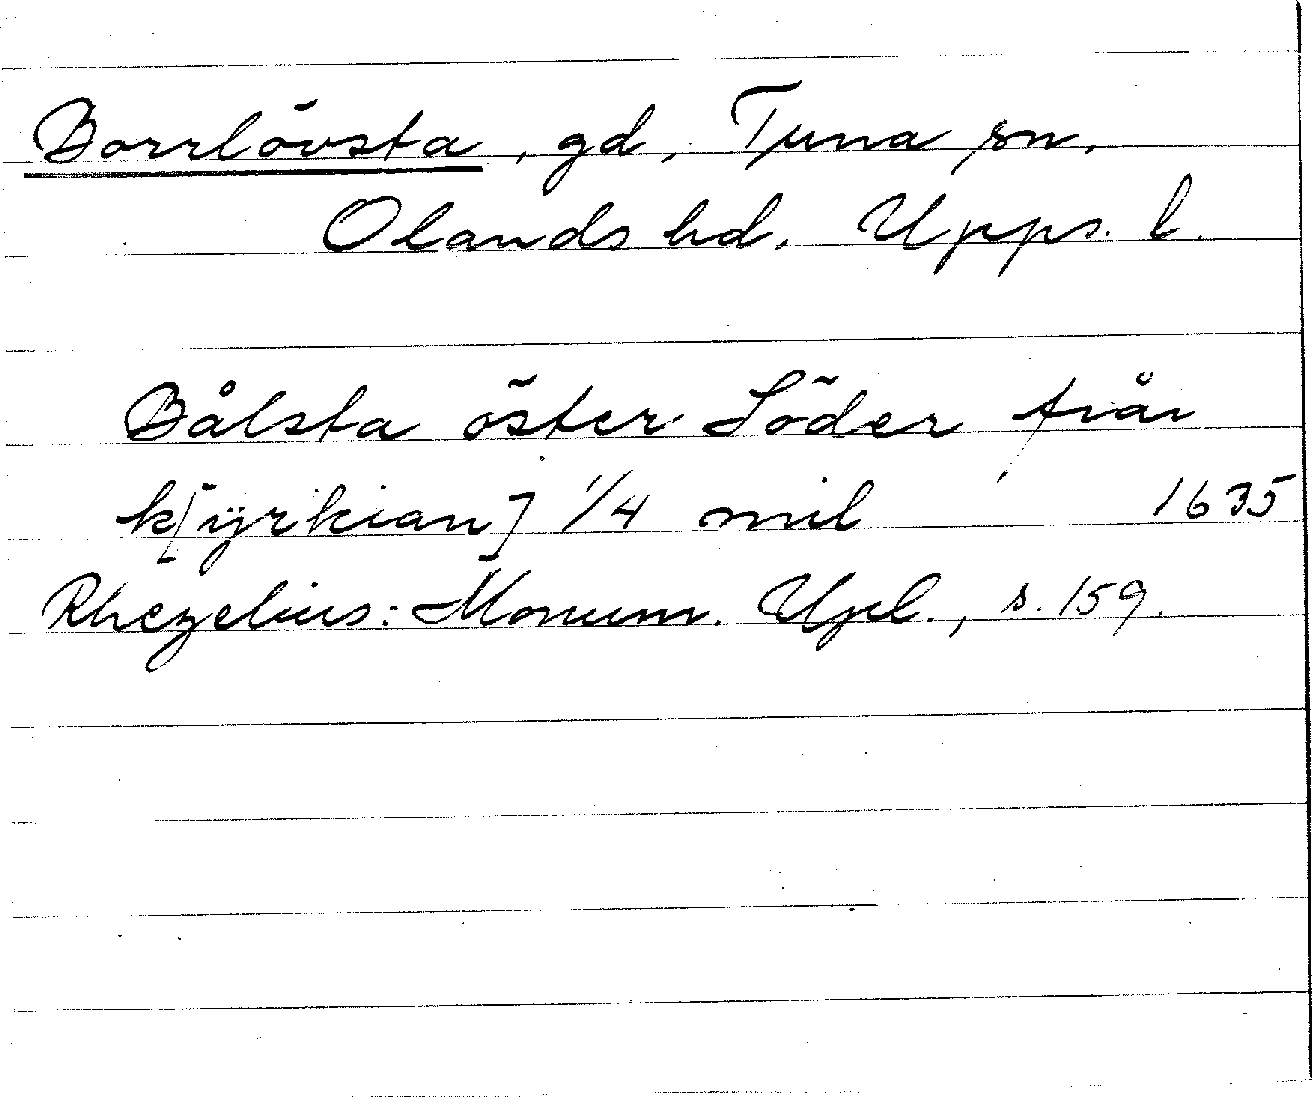 Borrlövsta, gd, Tuna sn,
Olands hd. Upps. l.
Bålsta öster Söder från
k[yrkian] 1/4 mil 1635
Rhezelius: Monum. Upl., s. 159.